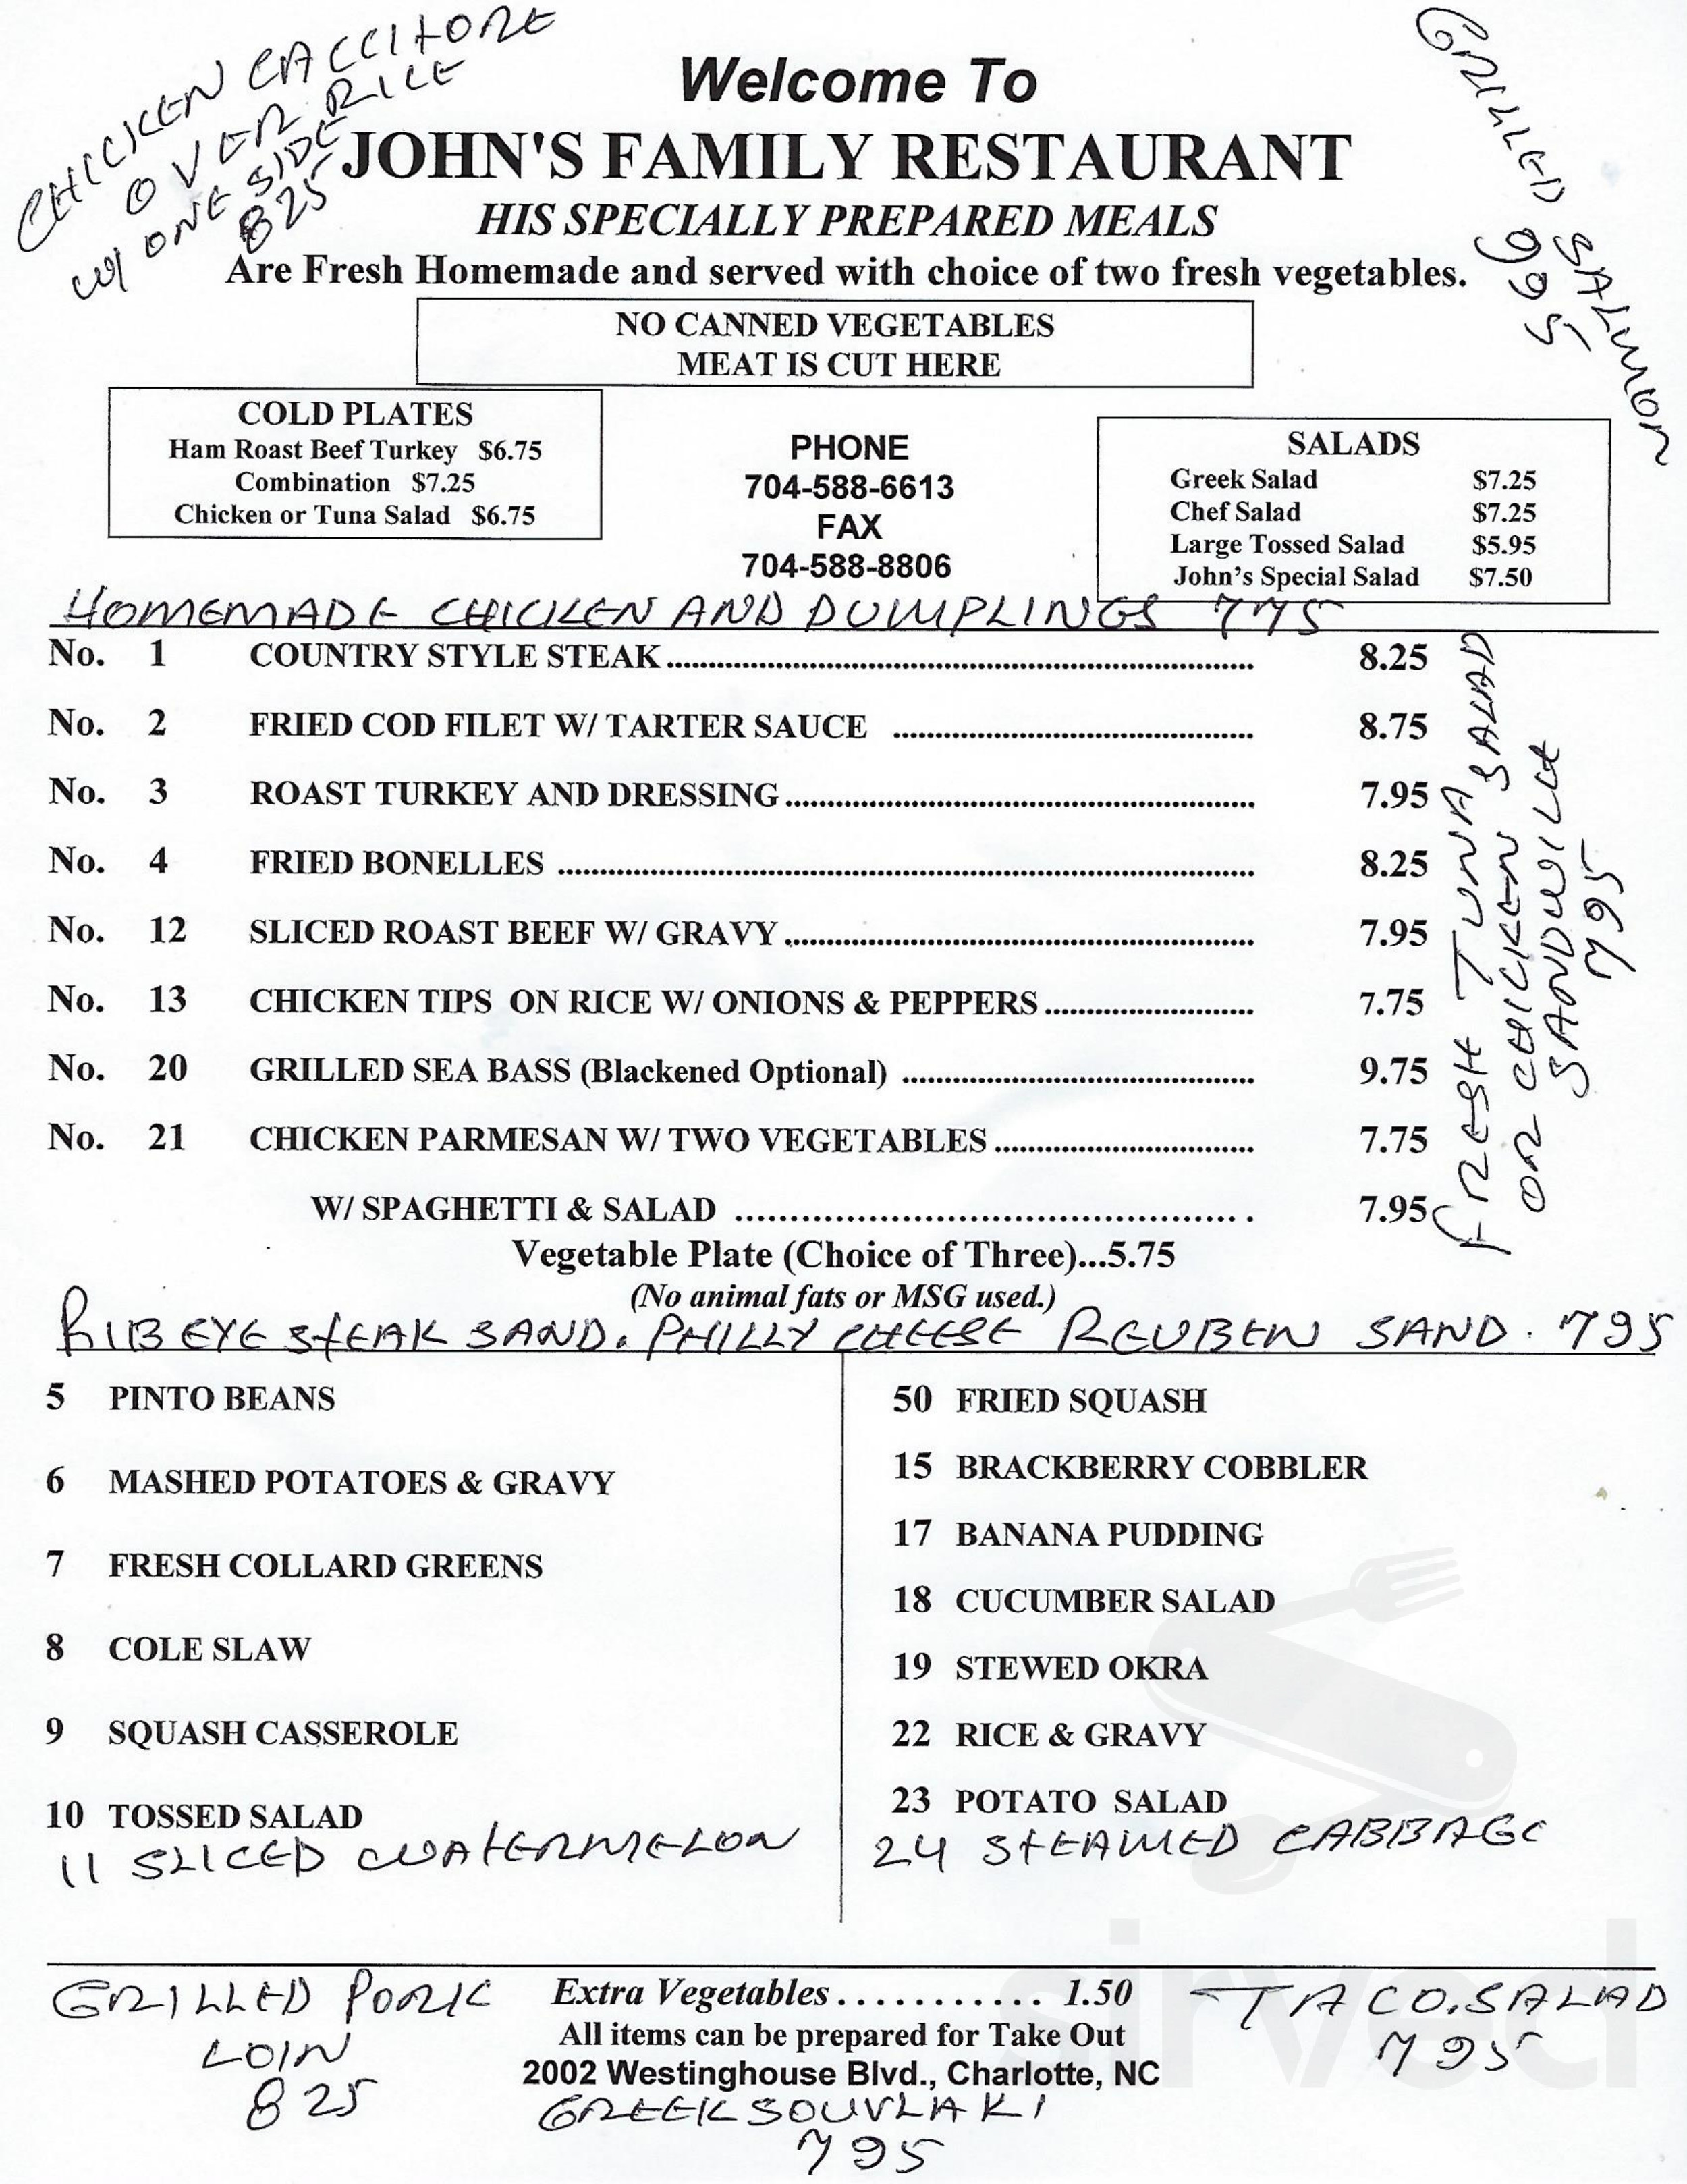 CHICKEN CACCITORE
OVER RICE
W/ ONE SIDE
825
GRILLED SALMON
995
Welcome To
JOHN'S FAMILY RESTAURANT
HIS SPECIALLY PREPARED MEALS
Are Fresh Homemade and served with choice of two fresh vegetables.
NO CANNED VEGETABLES
MEAT IS CUT HERE
COLD PLATES
Ham Roast Beef Turkey $6.75
Combination $7.25
Chicken or Tuna Salad $6.75
PHONE
704-588-6613
FAX
704-588-8806
SALADS
Greek Salad $7.25
Chef Salad $7.25
Large Tossed Salad $5.95
John’s Special Salad $7.50
HOMEMADE CHICKEN AND DUMPLINGS 775
No. 1 COUNTRY STYLE STEAK 8.25
No. 2 FRIED COD FILET W/ TARTER SAUCE 8.75
No. 3 ROAST TURKEY AND DRESSING 7.95
No. 4 FRIED BONELLES 8.25
No. 12 SLICED ROAST BEEF W/ GRAVY 7.95
No. 13 CHICKEN TIPS ON RICE W/ ONIONS & PEPPERS 7.75
No. 20 GRILLED SEA BASS (Blackened Optional) 9.75
No. 21 CHICKEN PARMESAN W/ TWO VEGETABLES 7.75
W/ SPAGHETTI & SALAD 7.95
FRESH TUNA SALAD
OR CHICKEN
SANDWICH
795
Vegetable Plate (Choice of Three)...5.75
(No animal fats or MSG used.)
RIBEYE STEAK SAND. PHILLY CHEESE REUBEN SAND. 795
5 PINTO BEANS
6 MASHED POTATOES & GRAVY
7 FRESH COLLARD GREENS
8 COLE SLAW
9 SQUASH CASSEROLE
10 TOSSED SALAD
11 SLICED WATERMELON
50 FRIED SQUASH
15 BRACKBERRY COBBLER
17 BANANA PUDDING
18 CUCUMBER SALAD
19 STEWED OKRA
22 RICE & GRAVY
23 POTATO SALAD
24 STEAMED CABBAGE
GRILLED PORK
LOIN
825
Extra Vegetables........... 1.50
All items can be prepared for Take Out
2002 Westinghouse Blvd., Charlotte, NC
GREEK SOUVLAKI
795
TACO.SALAD
795
sirved